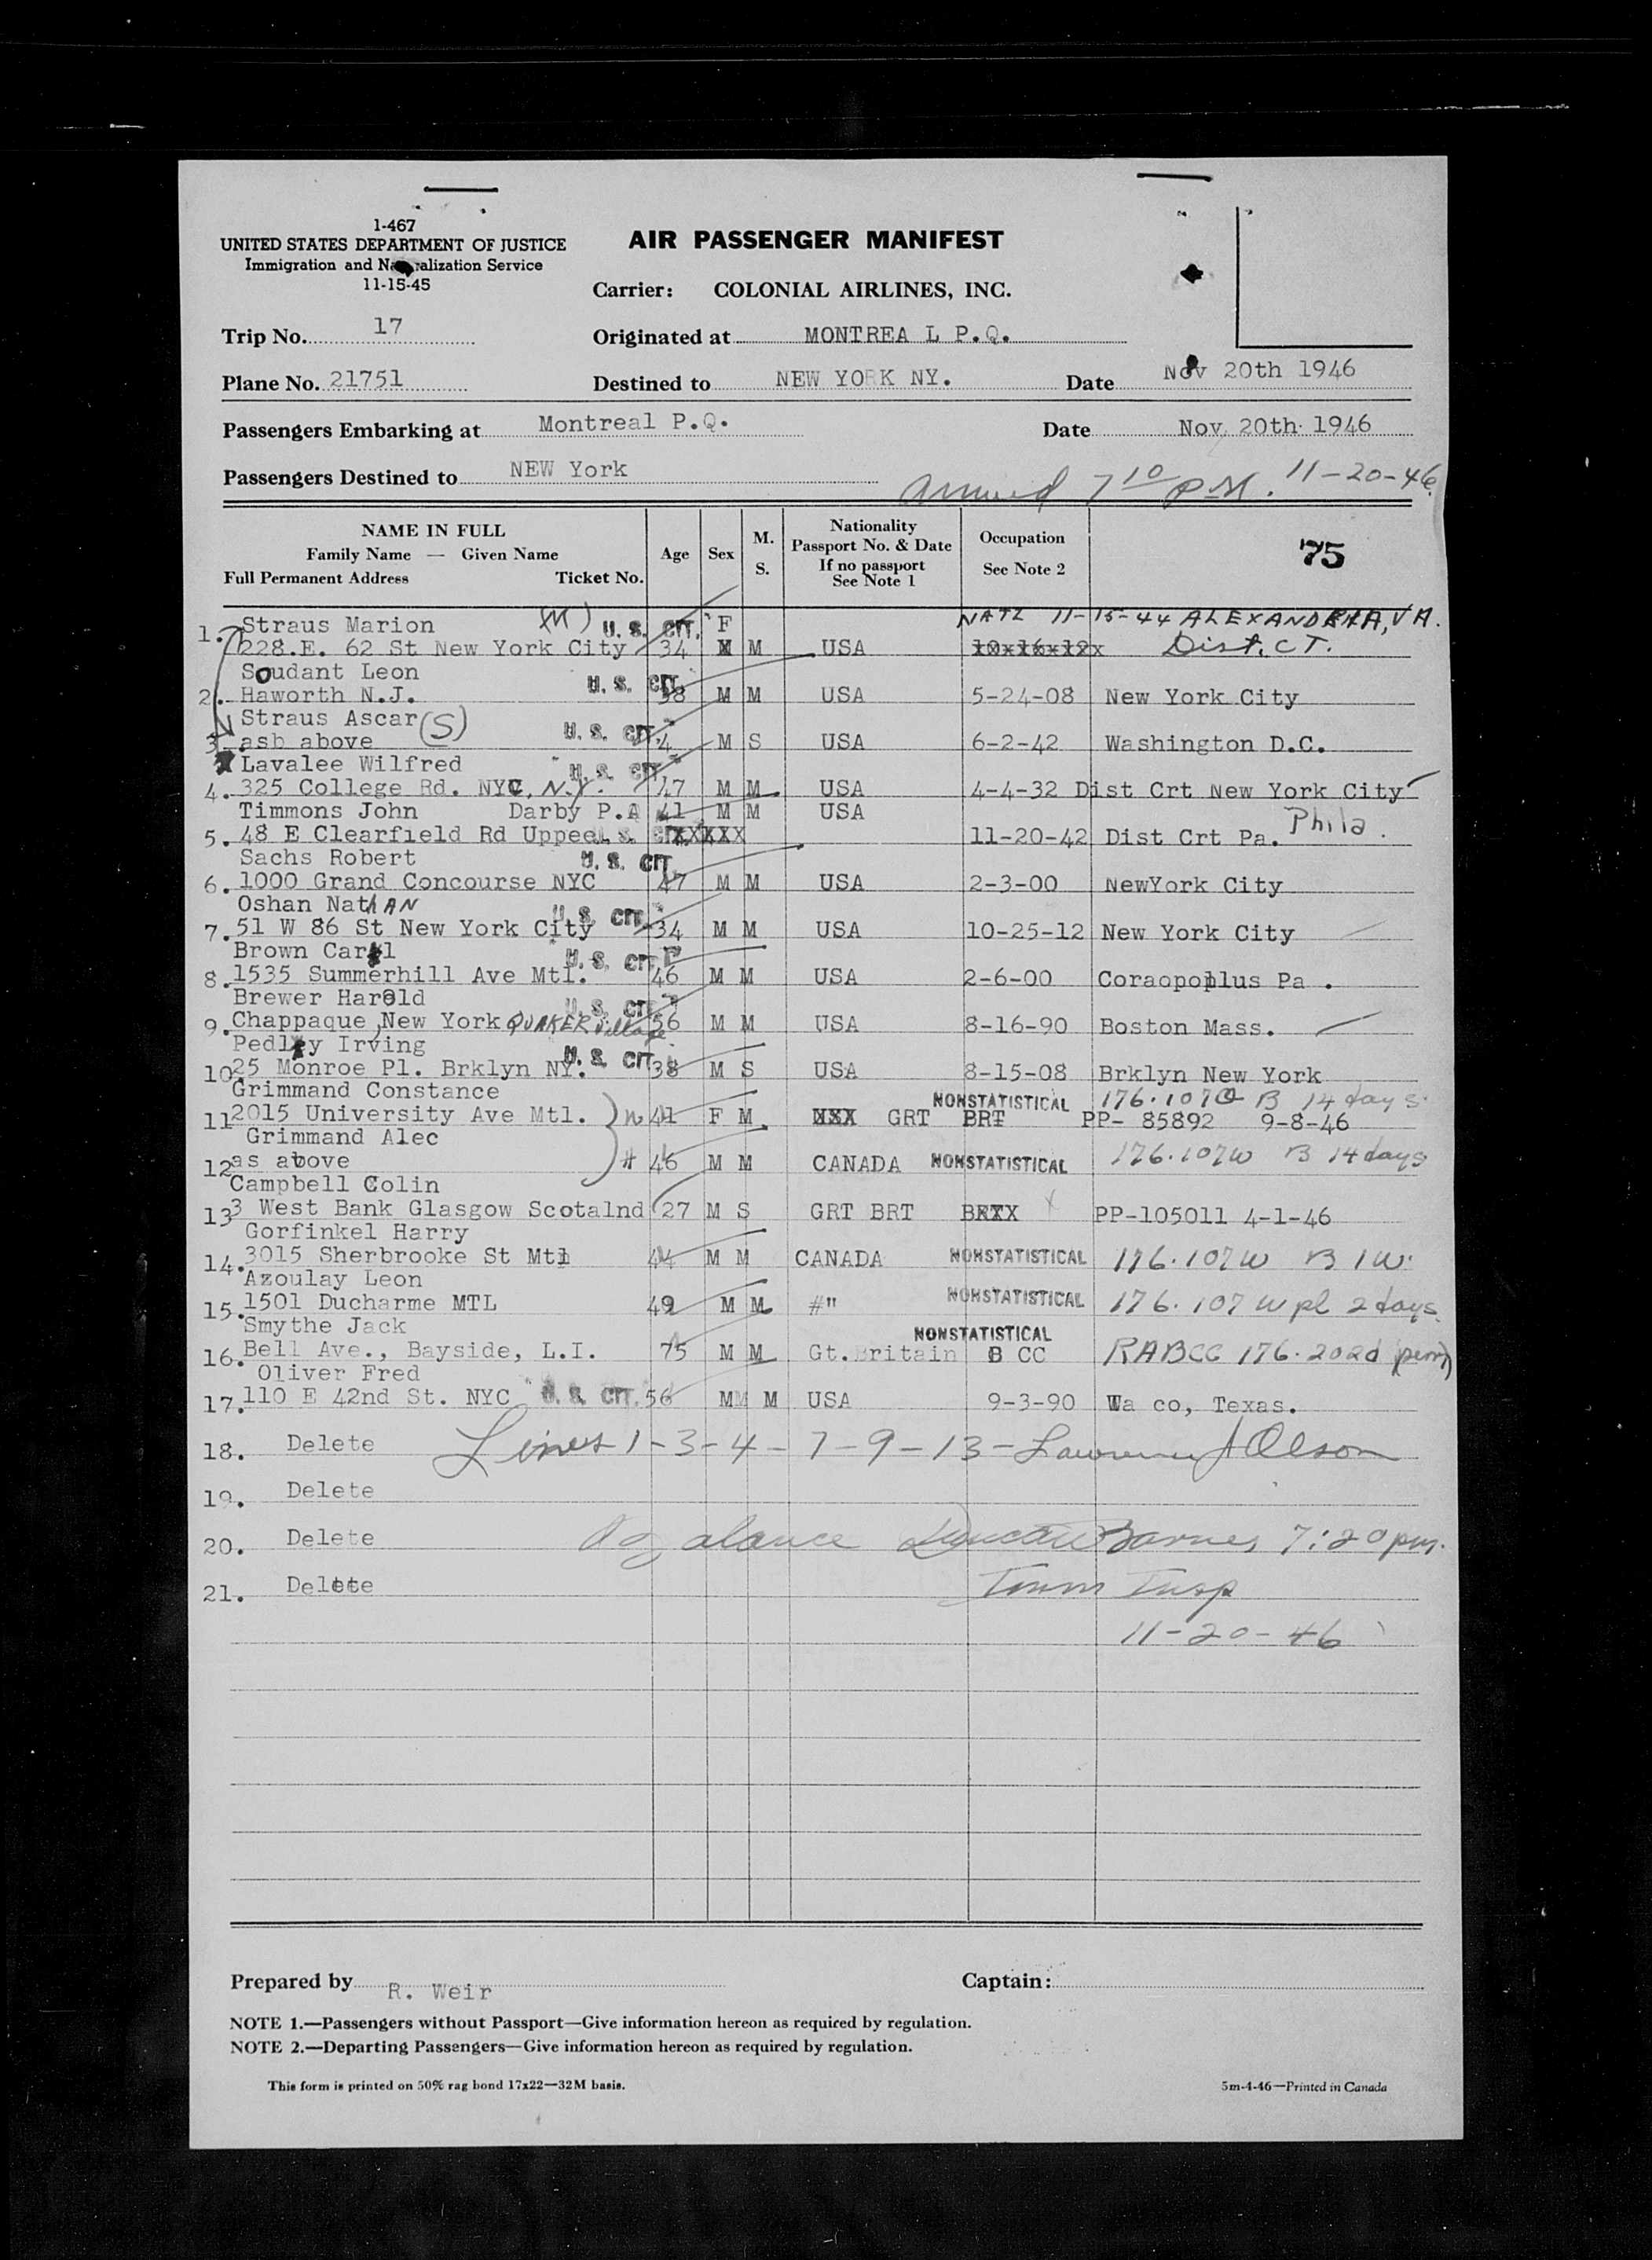 1-467
UNITED STATES DEPARTMENT OF JUSTICE
Immigration and Naturalization Service
11-15-45
AIR PASSENGER MANIFEST
Carrier: COLONIAL AIRLINES, INC.
Trip No. 17
Originated at MONTREA L P.Q.
Plane No. 21751
Destined to NEW YORK NY.
Date Nov 20th 1946
Passengers Embarking at Montreal P.Q.
Date Nov 20th 1946
Passengers Destined to NEW York
Arrived 7 10 P.M. 11-20-46
NAME IN FULL
Family Name — Given Name
Full Permanent Address Ticket No.
Age Sex M. S.
Nationality
Passport No. & Date
If no passport
See Note 1
Occupation
See Note 2
75
Straus Marion (M) U. S. CIT. F NATZ 11-15-44 ALEXANDRIA, VA.
1. 228.E. 62 St New York City 34 M USA 10-16-12x Dist. CT.
Soudant Leon U. S. CIT.
2. Haworth N.J. 38 M M USA 5-24-08 New York City
Straus Ascar (S) U. S. CIT.
3. asb above 4 M S USA 6-2-42 Washington D.C.
Lavalee Wilfred U. S. CIT.
4. 325 College Rd. NYC, N.Y. 47 M M USA 4-4-32 Dist Crt New York City
Timmons John Darby P.A 41 M M USA
5. 48 E Clearfield Rd Uppe U. S. CIT. XXXXX 11-20-42 Dist Crt Pa. Phila.
Sachs Robert U. S. CIT.
6. 1000 Grand Concourse NYC 47 M M USA 2-3-00 NewYork City
Oshan NatHAN U. S. CIT.
7. 51 W 86 St New York City 34 M M USA 10-25-12 New York City
Brown Carl U. S. CIT.
8. 1535 Summerhill Ave Mtl. 46 M M USA 2-6-00 Coraopoplus Pa .
Brewer Harold U. S. CIT.
9. Chappaque, New York QUAKER Village 56 M M USA 8-16-90 Boston Mass.
Pedley Irving U. S. CIT.
10. 25 Monroe Pl. Brklyn NY. 38 M S USA 8-15-08 Brklyn New York
Grimmand Constance NONSTATISTICAL 176.107 B 14 days
11. 2015 University Ave Mtl. 41 F M XXX GRT BRT PP- 85892 9-8-46
Grimmand Alec
12. as above 46 M M CANADA NONSTATISTICAL 176.107W B 14 days
Campbell Colin
13. 3 West Bank Glasgow Scotalnd 27 M S GRT BRT PP-105011 4-1-46
Gorfinkel Harry
14. 3015 Sherbrooke St Mtl 44 M M CANADA NONSTATISTICAL 176.107W B 1W.
Azoulay Leon
15. 1501 Ducharme MTL 49 M M #" NONSTATISTICAL 176.107 W pl 2 days.
Smythe Jack NONSTATISTICAL
16. Bell Ave., Bayside, L.I. 75 M M Gt.Britain B CC RABCC 176.202d (perm)
Oliver Fred
17. 110 E 42nd St. NYC U. S. CIT. 56 MM M USA 9-3-90 Wa co, Texas.
18. Delete Lines 1-3-4-7-9-13- Lawrence J Olson
19. Delete
20. Delete Barnes 7:20 pm.
21. Delete Imm Insp
11-20-46
Prepared by R. Weir
Captain:
NOTE 1.—Passengers without Passport—Give information hereon as required by regulation.
NOTE 2.—Departing Passengers—Give information hereon as required by regulation.
This form is printed on 50% rag bond 17x22—32M basis.
5m-4-46—Printed in Canada